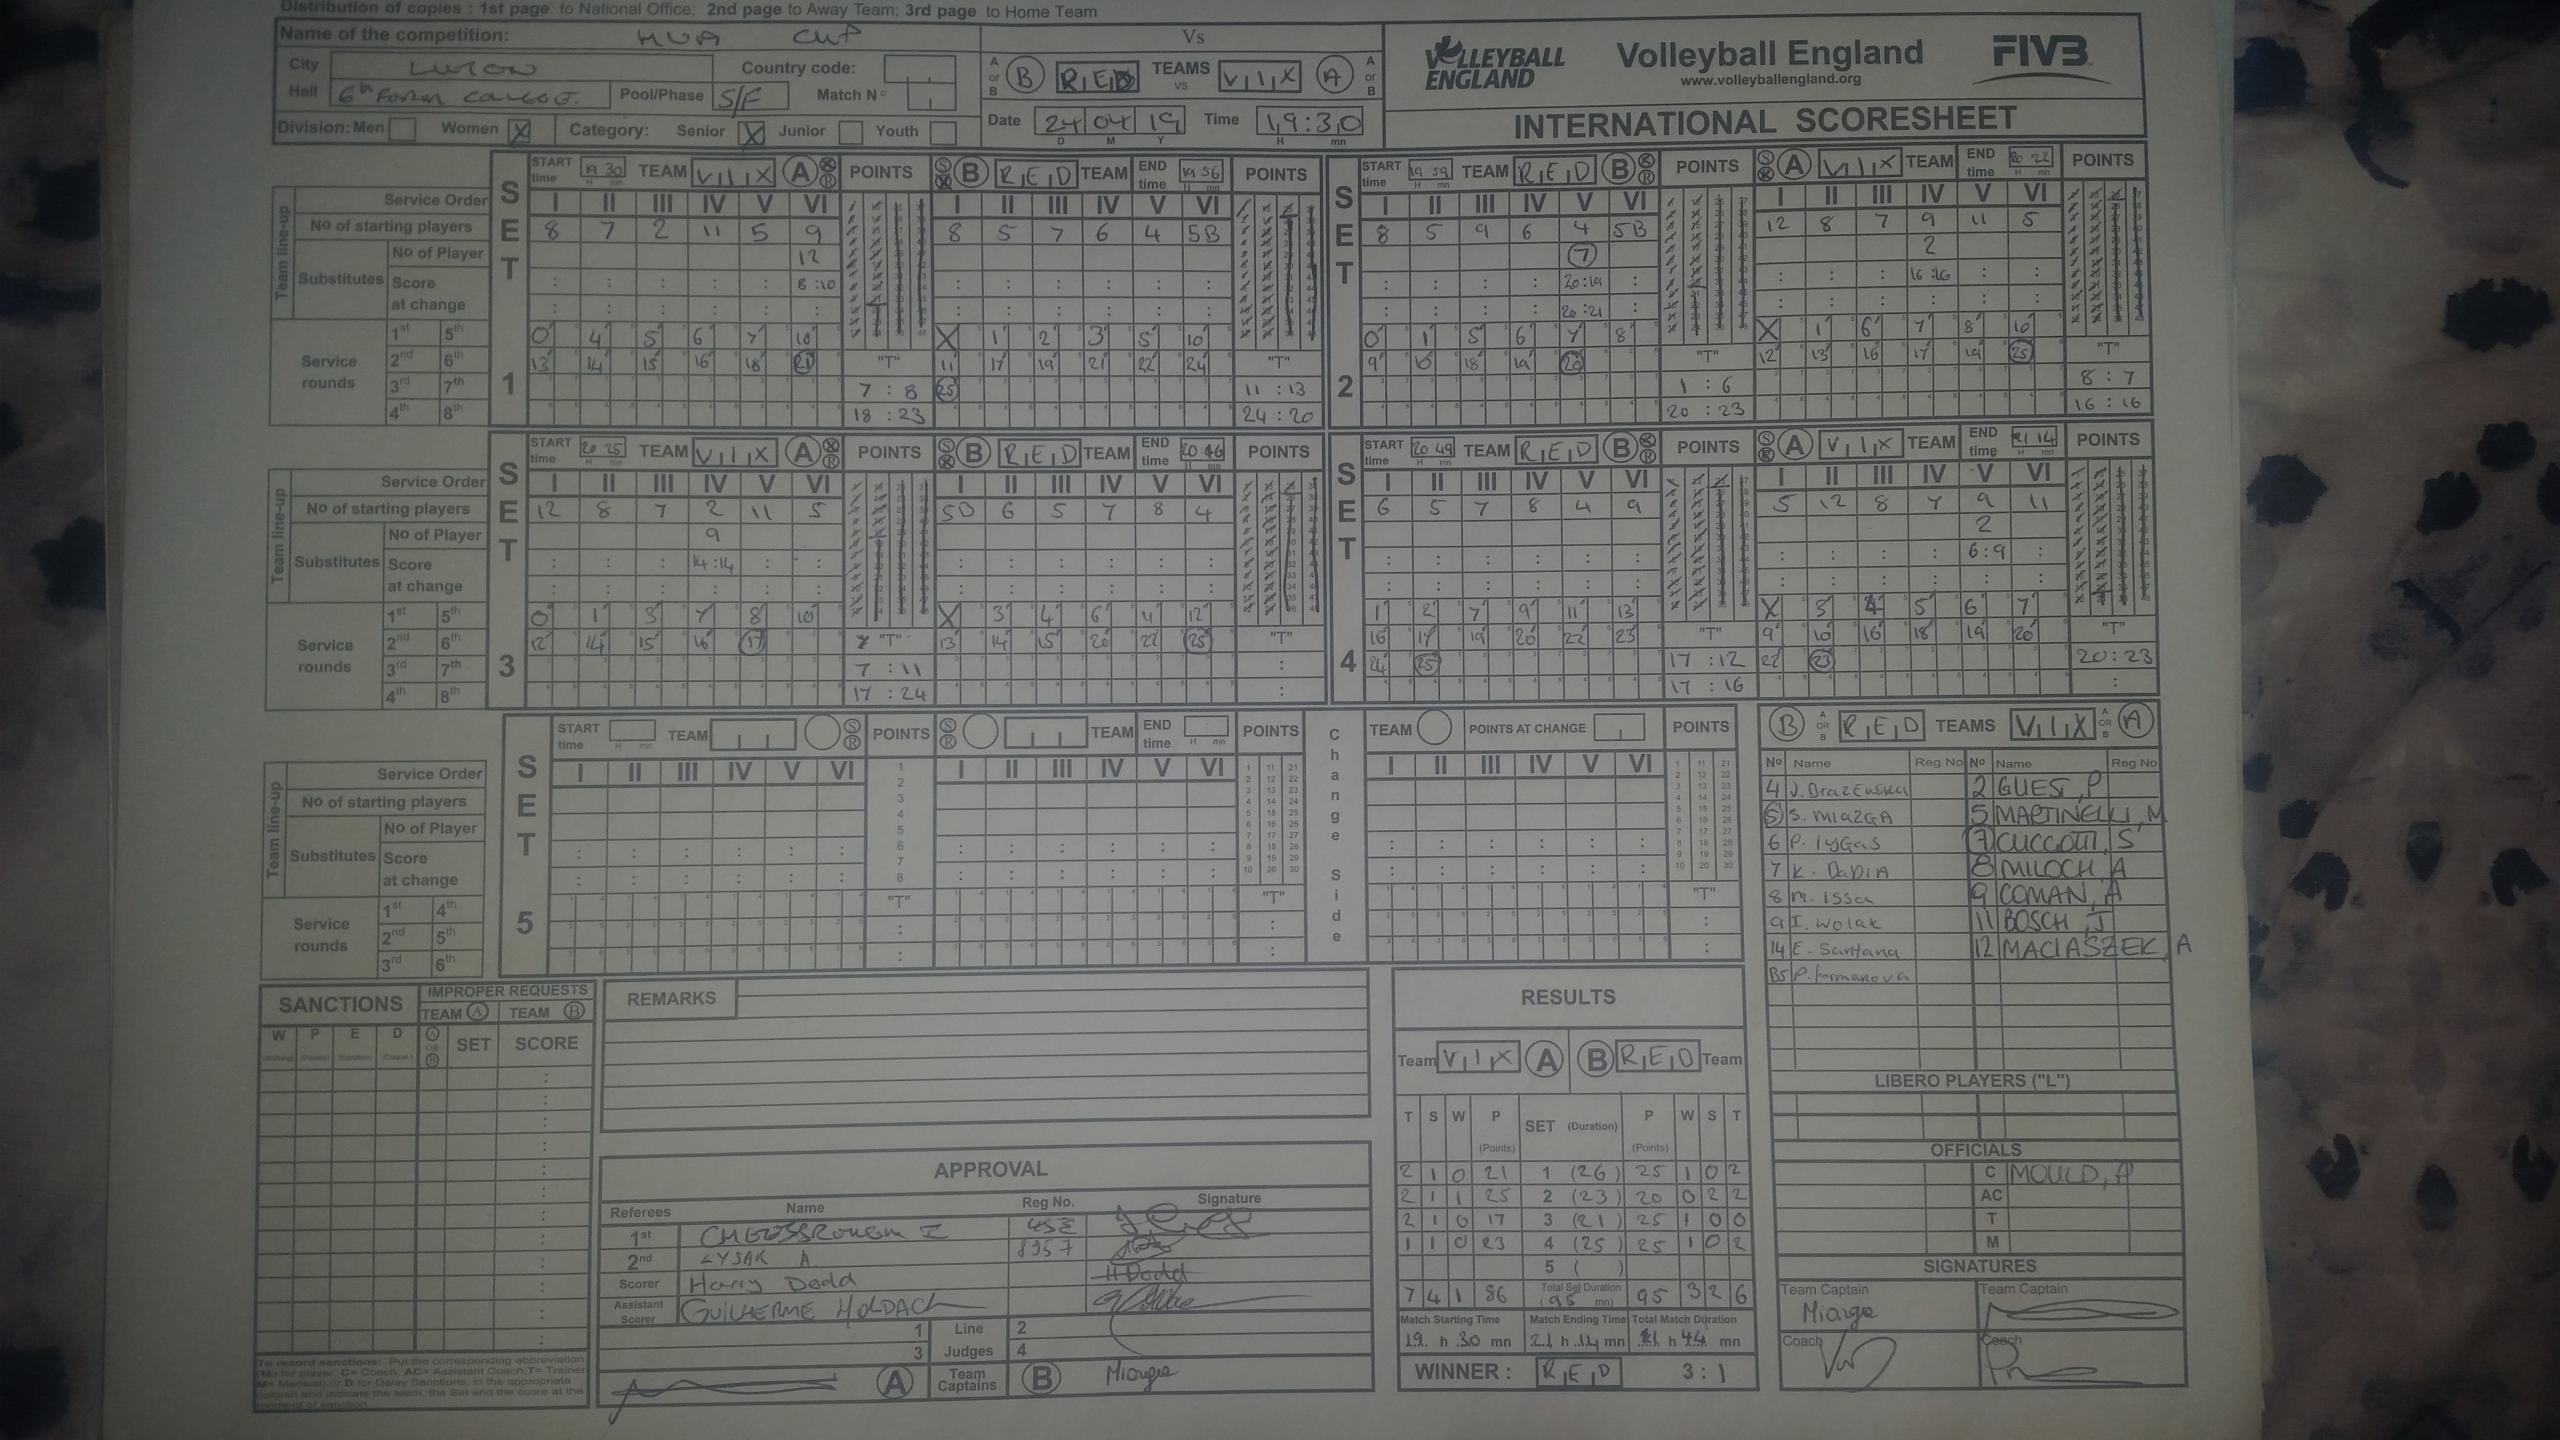 Distribution of copies : 1st page to National Office; 2nd page to Away Team; 3rd page to Home Team
Name of the competition: HVA CUP
City LUTON Country code:
Hall 6th FORM COLLEGE. Pool/Phase S/F Match Nº
Division: Men Women X Category: Senior X Junior Youth
Vs
A or B B RED TEAMS VS VIX A A or B
Date 24 04 19 Time 19:30
D M Y H mn
VOLLEYBALL ENGLAND Volleyball England FIVB
www.volleyballengland.org
INTERNATIONAL SCORESHEET
SET 1
START time 19 30 TEAM VIX A POINTS B RED TEAM END time 19 56 POINTS
Service Order I II III IV V VI I II III IV V VI
No of starting players 8 7 2 11 5 9 8 5 7 6 4 5B
Team line-up Substitutes No of Player 12
Score at change 8:10
Service rounds
1st 5th 0 4 5 6 7 10 X 1 2 3 5 10
2nd 6th 13 14 15 16 18 21 "T" 11 17 19 21 22 24 "T"
3rd 7th 7 : 8 25 11 : 13
4th 8th 18 : 23 24 : 20
SET 2
START time 19 59 TEAM RED B POINTS A VIX TEAM END time 20 22 POINTS
I II III IV V VI I II III IV V VI
8 5 9 6 4 5B 12 8 7 9 11 5
7 2
20:19 16:16
20:21
0 1 5 6 7 8 X 1 6 7 8 10
9 10 18 19 20 "T" 12 13 16 17 19 25 "T"
1 : 6 8 : 7
20 : 23 16 : 16
SET 3
START time 20 25 TEAM VIX A POINTS B RED TEAM END time 20 46 POINTS
Service Order I II III IV V VI I II III IV V VI
No of starting players 12 8 7 2 11 5 5B 6 5 7 8 4
Team line-up Substitutes No of Player 9
Score at change 14:14
Service rounds
1st 5th 0 1 3 7 8 10 X 3 4 6 11 12
2nd 6th 12 14 15 16 17 "T" 13 14 15 20 22 25 "T"
3rd 7th 7 : 11
4th 8th 17 : 24
SET 4
START time 20 49 TEAM RED B POINTS A VIX TEAM END time 21 14 POINTS
I II III IV V VI I II III IV V VI
6 5 7 8 4 9 5 12 8 7 9 11
2
6:9
1 2 7 9 11 13 X 3 4 5 6 7
16 17 19 20 22 23 "T" 9 10 16 18 19 20 "T"
24 25 17 : 12 22 23 20:23
17 : 16
SET 5
START time TEAM S R POINTS TEAM END time POINTS
Change Side
TEAM POINTS AT CHANGE POINTS
Service Order I II III IV V VI I II III IV V VI I II III IV V VI
No of starting players
Team line-up Substitutes No of Player
Score at change
Service rounds
1st 4th "T" "T" "T"
2nd 5th
3rd 6th
B A OR B RED TEAMS VIX A OR B A
Nº Name Reg No Nº Name Reg No
4 J. DrazEnska 2 GUEST, P
5 S. MIAZGA 5 MARTINELLI, M
6 P. IyGas 7 CUCCOTTI, S
7 K. DaDIA 8 MILOCH, A
8 M. Issa 9 COMAN, A
9 I. Wolak 11 BOSCH, J
14 E. Santana 12 MACIASZEK, A
B5 P. Formanova
LIBERO PLAYERS ("L")
OFFICIALS
C MOULD, A
AC
T
M
SIGNATURES
Team Captain Team Captain
Miazga
Coach Coach
SANCTIONS IMPROPER REQUESTS
TEAM A TEAM B
W P E D A OR B SET SCORE
To record sanctions: Put the corresponding abbreviation (No for player, C= Coach, AC= Assistant Coach T= Trainer M= Medical) or D for Delay Sanctions, in the appropriate column and indicate the team, the Set and the score at the moment of sanction.
REMARKS
APPROVAL
Referees Name Reg No. Signature
1st
2nd LYSAK A 8957
Scorer Harry Dodd H Dodd
Assistant Scorer GUILHERME MOLDACH
1 Line 2
3 Judges 4
A Team Captains B Miazga
RESULTS
Team VIX A B RED Team
T S W P (Points) SET (Duration) P (Points) W S T
2 1 0 21 1 (26) 25 1 0 2
2 1 1 25 2 (23) 20 0 2 2
2 1 0 17 3 (21) 25 1 0 0
1 1 0 23 4 (25) 25 1 0 2
5 ( )
7 4 1 86 Total Set Duration (95 mn) 95 3 2 6
Match Starting Time Match Ending Time Total Match Duration
19 h 30 mn 21 h 14 mn 1 h 44 mn
WINNER : RED 3 : 1